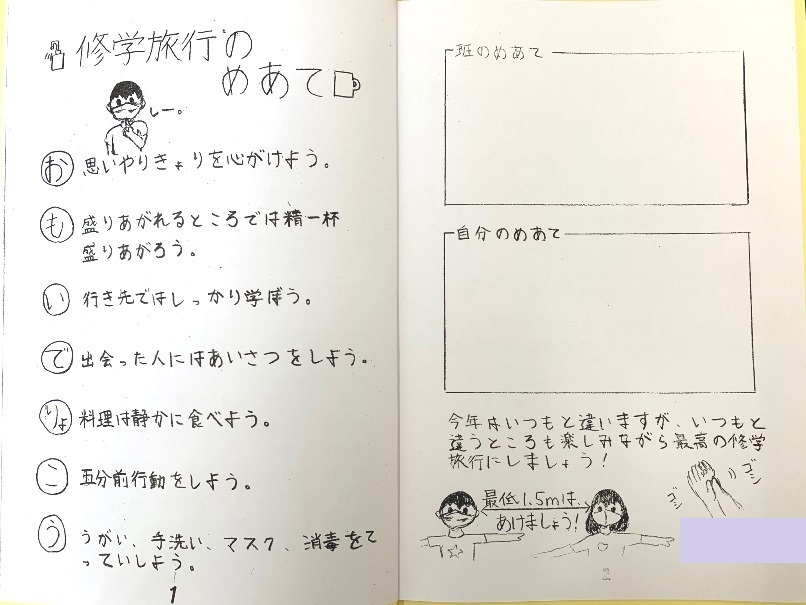 修学旅行の
めあて
しー。
お 思いやりきょりを心がけよう。
も 盛りあがれるところでは精一杯
盛りあがろう。
い 行き先ではしっかり学ぼう。
で 出会った人にはあいさつをしよう。
りょ 料理は静かに食べよう。
こ 五分前行動をしよう。
う うがい、手洗い、マスク、消毒をて
っていしよう。
1
班のめあて
自分のめあて
今年はいつもと違いますが、いつもと
違うところも楽しみながら最高の修学
旅行にしましょう!
ゴシ
ゴシ
最低1.5mは、
あけましょう!
2